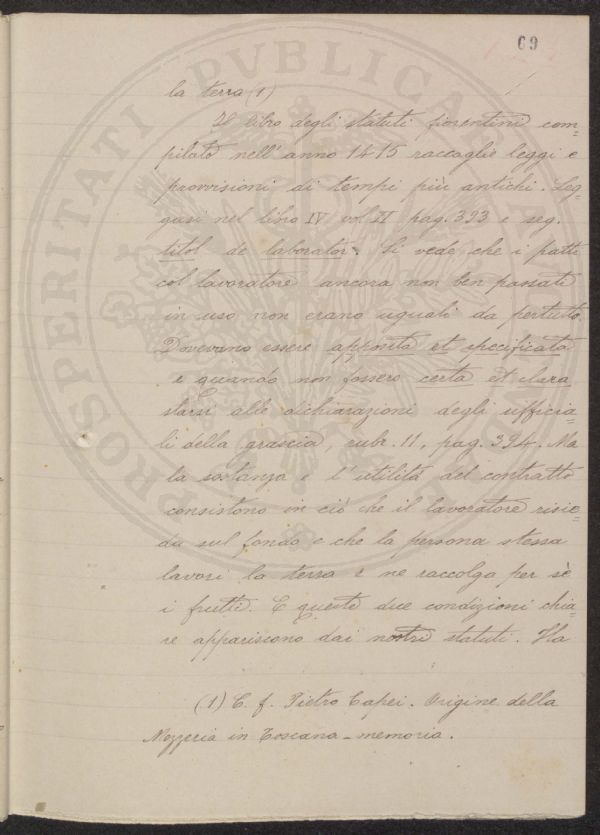 69
la terra (1)
Il libro degli statuti fiorentini com=
pilato nell'anno 1415 raccoglie leggi e
provvisioni di tempi più antichi. Leg=
gasi nel libro IV vol II pag. 393 e seg.
titol de laborator. Si vede che i patti
col lavoratore ancora non ben passati
in uso non erano uguali da pertutto.
Dovevano essere apposita et specificata
e quando non fossero certa et clara
starsi alle dichiarazioni degli ufficia=
li della grascia, rubr. 11, pag. 394. Ma
la sostanza e l'utilità del contratto
consistono in ciò che il lavoratore risie=
da sul fondo e che la persona stessa
lavori la terra e ne raccolga per sè
i frutti. E queste due condizioni chia=
re appariscono dai nostri statuti. Ha
(1) C. f. Pietro Capei. Origine della
Mezzeria in Toscana - memoria.
PROSPERITATI PUBLICAE